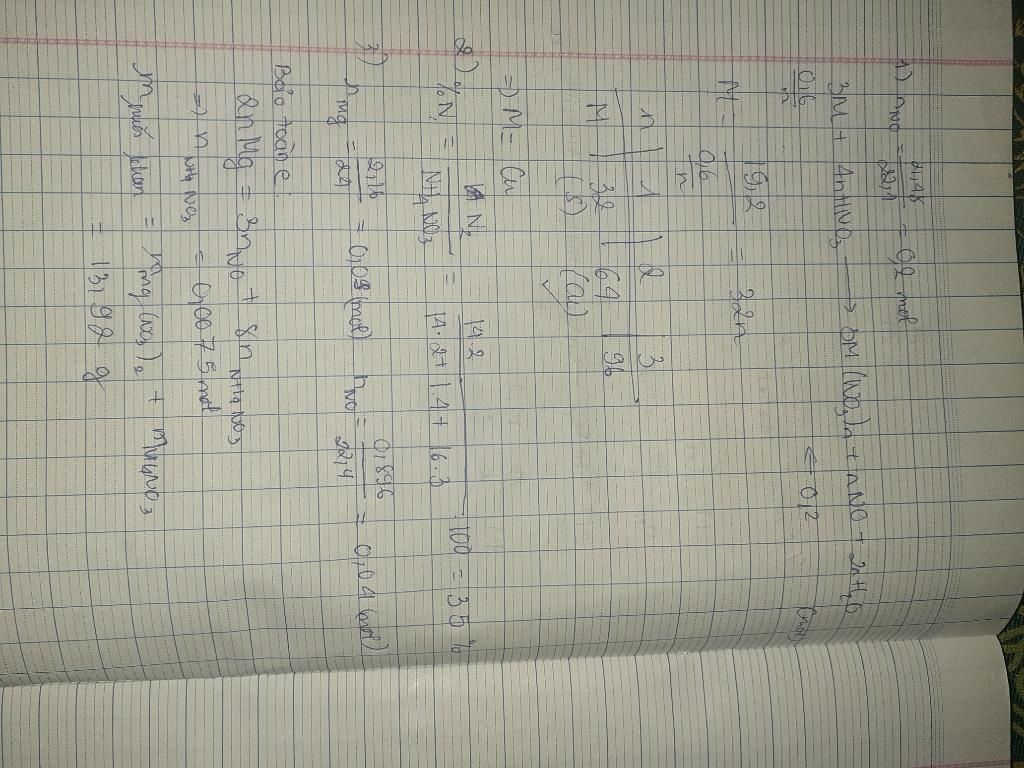 1) nNO = 4,48/22,4 = 0,2 mol
3M + 4nHNO3 → 3M(NO3)n + nNO + 2nH2O
0,6/n ← 0,2 (mol)
M = 19,2 / (0,6/n) = 32n
n | 1 | 2 | 3
M | 32 | 64 | 96
(S) (Cu)
=) M = Cu
2) %N = N2/NH4NO3 = 14.2/(14.2 + 1.4 + 16.3) 100 = 35%
3) nMg = 2,16/24 = 0,09 (mol) nNO = 0,896/22,4 = 0,04 (mol)
Bảo toàn e:
2nMg = 3nNO + 8nNH4NO3
=) nNH4NO3 = 0,0075 mol
mmuối khan = mMg(NO3)2 + mNH4NO3
= 13,92 g